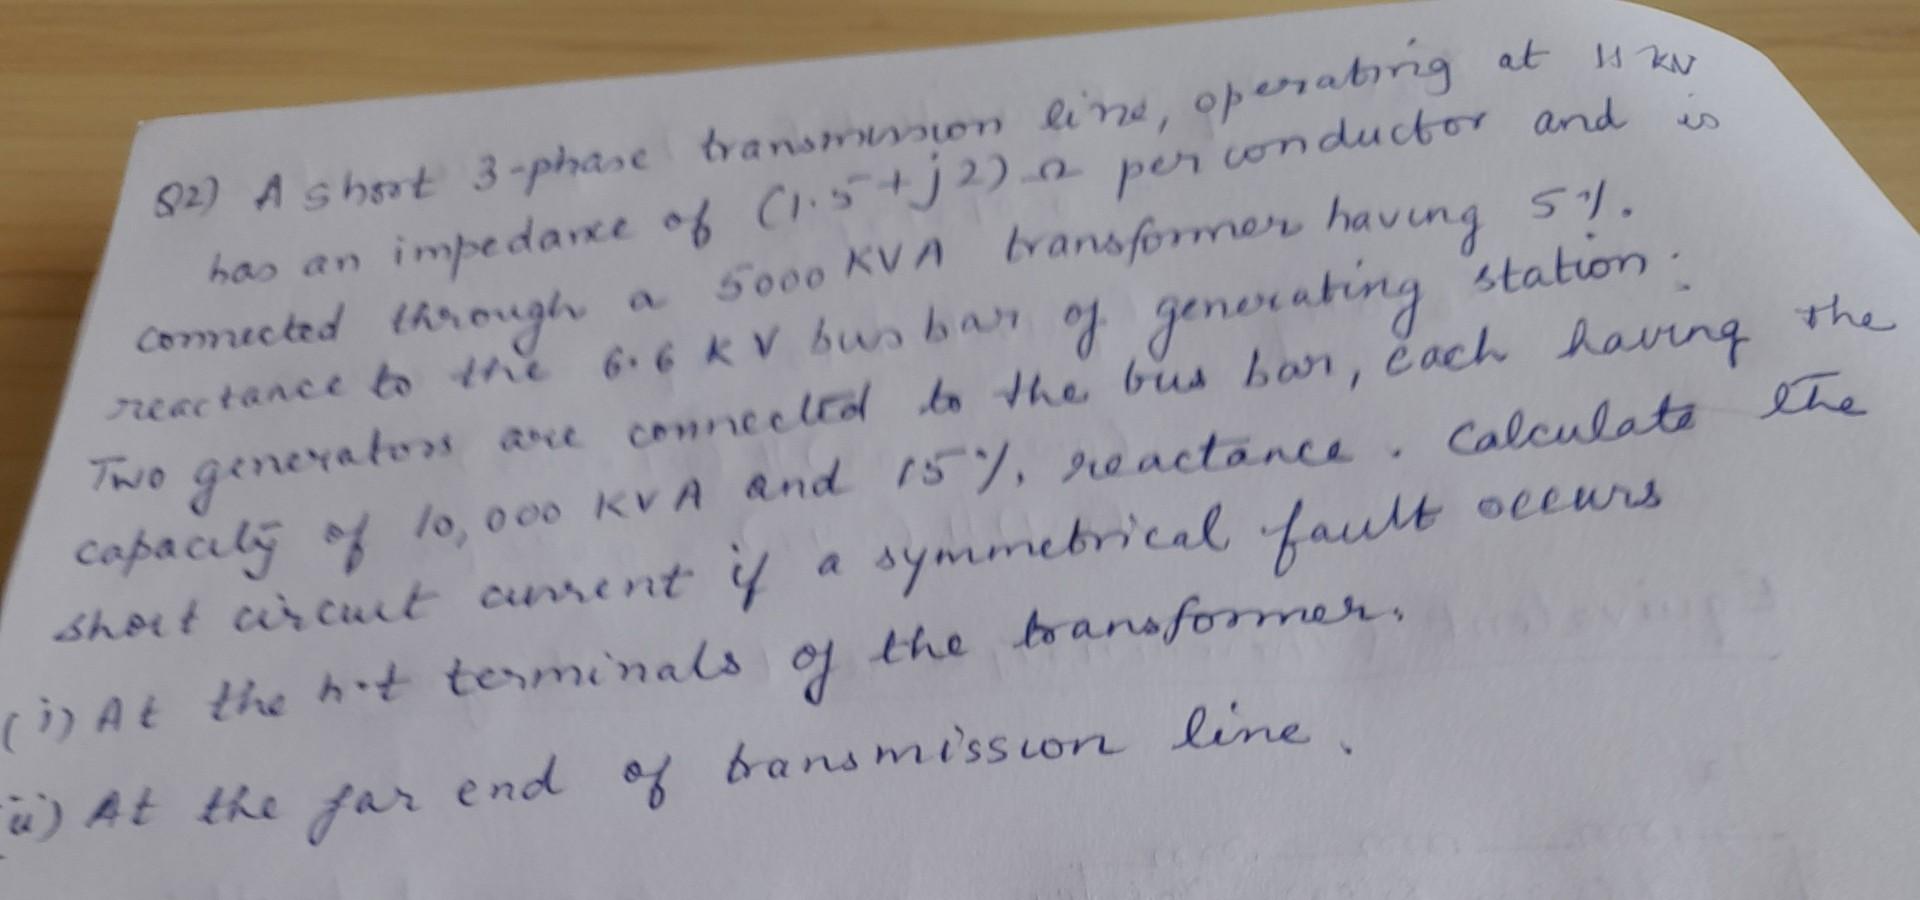 Q2) A short 3-phase transmission line, operating at 11 kV
has an impedance of (1.5+j2) Ω per conductor and is
connected through a 5000 KVA transformer having 5%.
reactance to the 6.6 KV bus bar of generating station.
Two generators are connected to the bus bar, each having the
capacity of 10,000 KVA and 15%. reactance. Calculate the
short circuit current if a symmetrical fault occurs
(i) At the h.t terminals of the transformer.
ii) At the far end of transmission line.